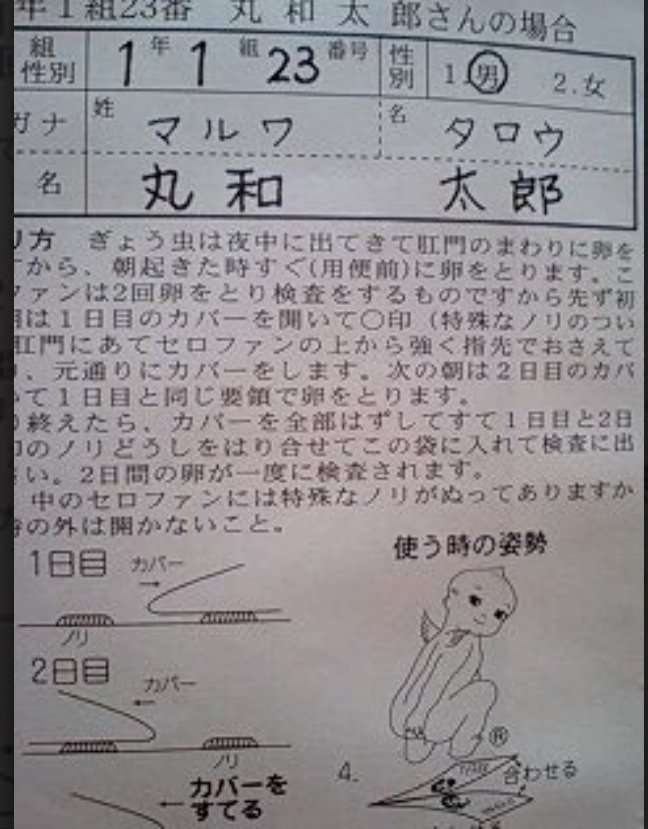 年1組23番 丸 和 太 郎さんの場合
組 1年 1組 23番号 性 1.男 2.女
性別 別
ガナ 姓 マルワ 名 タロウ
名 丸和 太郎
り方 ぎょう虫は夜中に出てきて肛門のまわりに卵を
から、朝起きた時すぐ(用便前)に卵をとります。こ
ファンは2回卵をとり検査をするものですから先ず初
は1日目のカバーを開いて○印（特殊なノリのつい
肛門にあてセロファンの上から強く指先でおさえて
、元通りにカバーをします。次の朝は2日目のカバ
て1日目と同じ要領で卵をとります。
終えたら、カバーを全部はずしてすて1日目と2日
のノリどうしをはり合せてこの袋に入れて検査に出
い。2日間の卵が一度に検査されます。
中のセロファンには特殊なノリがぬってありますか
の外は開かないこと。
使う時の姿勢
1日目 カバー
ノリ
2日目 カバー
ノリ
カバーを
すてる
4. 合わせる